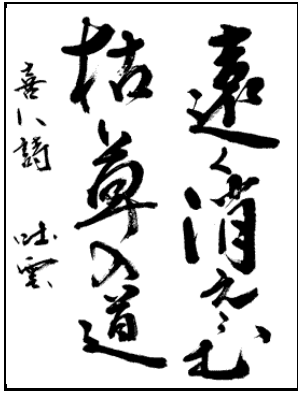 遠く消えこむ
枯草の道
喜八詩 吐雲